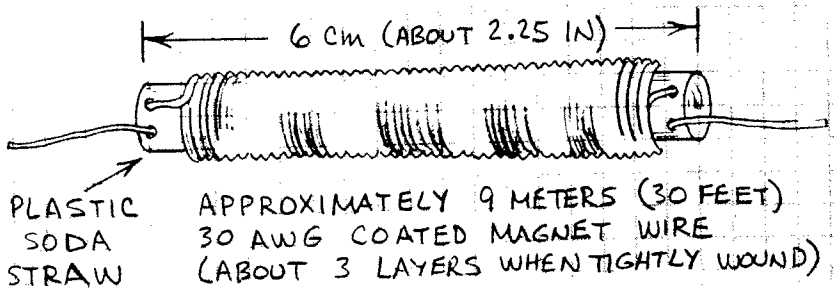 6 cm (ABOUT 2.25 IN)
PLASTIC
SODA
STRAW
APPROXIMATELY 9 METERS (30 FEET)
30 AWG COATED MAGNET WIRE
(ABOUT 3 LAYERS WHEN TIGHTLY WOUND)